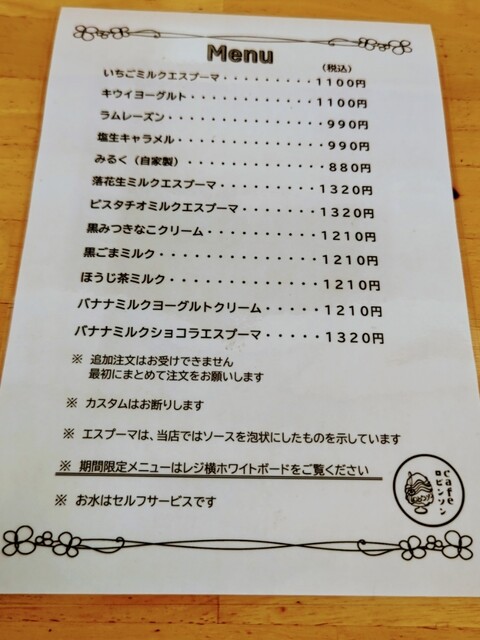 Menu
(税込)
いちごミルクエスプーマ・・・・・・・・・1100円
キウイヨーグルト・・・・・・・・・・・・1100円
ラムレーズン・・・・・・・・・・・・・990円
塩生キャラメル・・・・・・・・・・・・990円
みるく(自家製)・・・・・・・・・・・880円
落花生ミルクエスプーマ・・・・・・・・1320円
ピスタチオミルクエスプーマ・・・・・・1320円
黒みつきなこクリーム・・・・・・・・・1210円
黒ごまミルク・・・・・・・・・・・・・1210円
ほうじ茶ミルク・・・・・・・・・・・・1210円
バナナミルクヨーグルトクリーム・・・・・1210円
バナナミルクショコラエスプーマ・・・・・1320円
※ 追加注文はお受けできません
最初にまとめて注文をお願いします
※ カスタムはお断りします
※ エスプーマは、当店ではソースを泡状にしたものを示しています
※ 期間限定メニューはレジ横ホワイトボードをご覧ください
※ お水はセルフサービスです
Cafe
ロビンソン